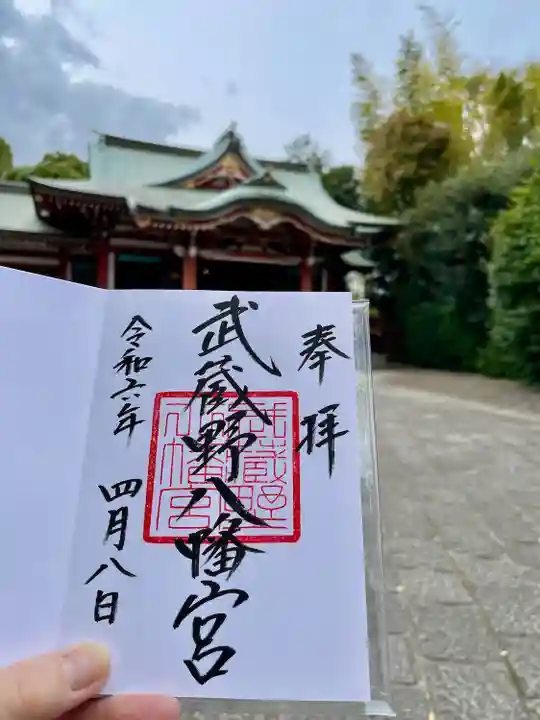 奉拝
武蔵野八幡宮
武蔵野八幡宮
令和六年
四月八日